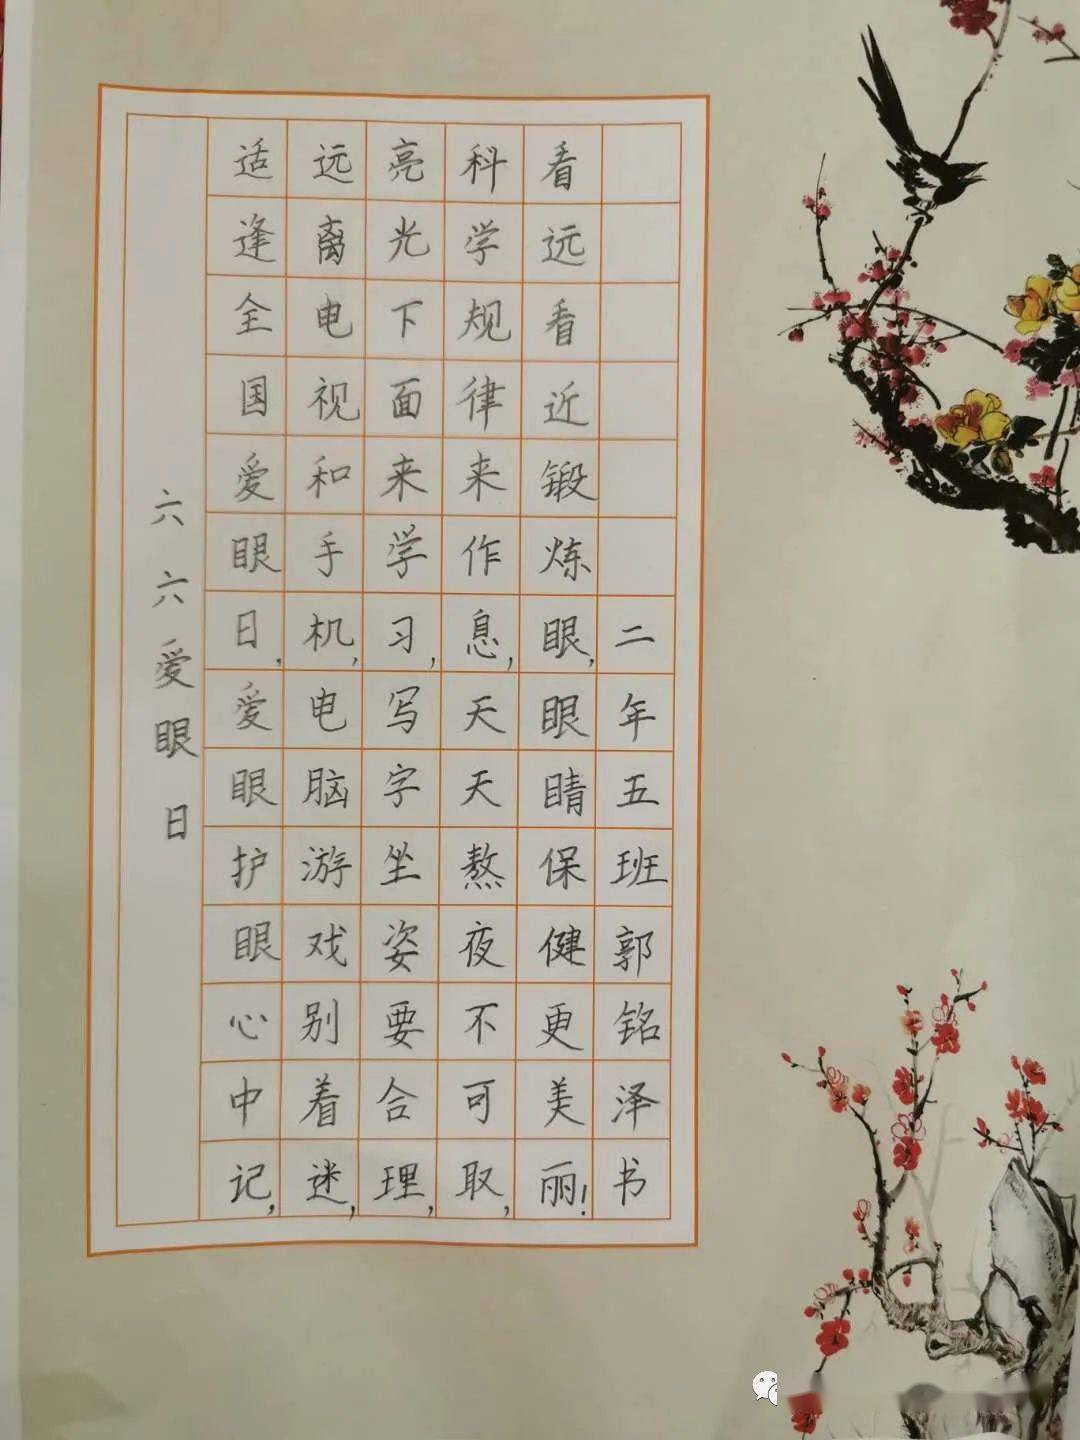 六六爱眼日
适逢全国爱眼日,爱眼护眼心中记,
远离电视和手机,电脑游戏别着迷,
亮光下面来学习,写字坐姿要合理,
科学规律来作息,天天熬夜不可取,
看远看近锻炼眼,眼睛保健更美丽!
二年五班郭铭泽书